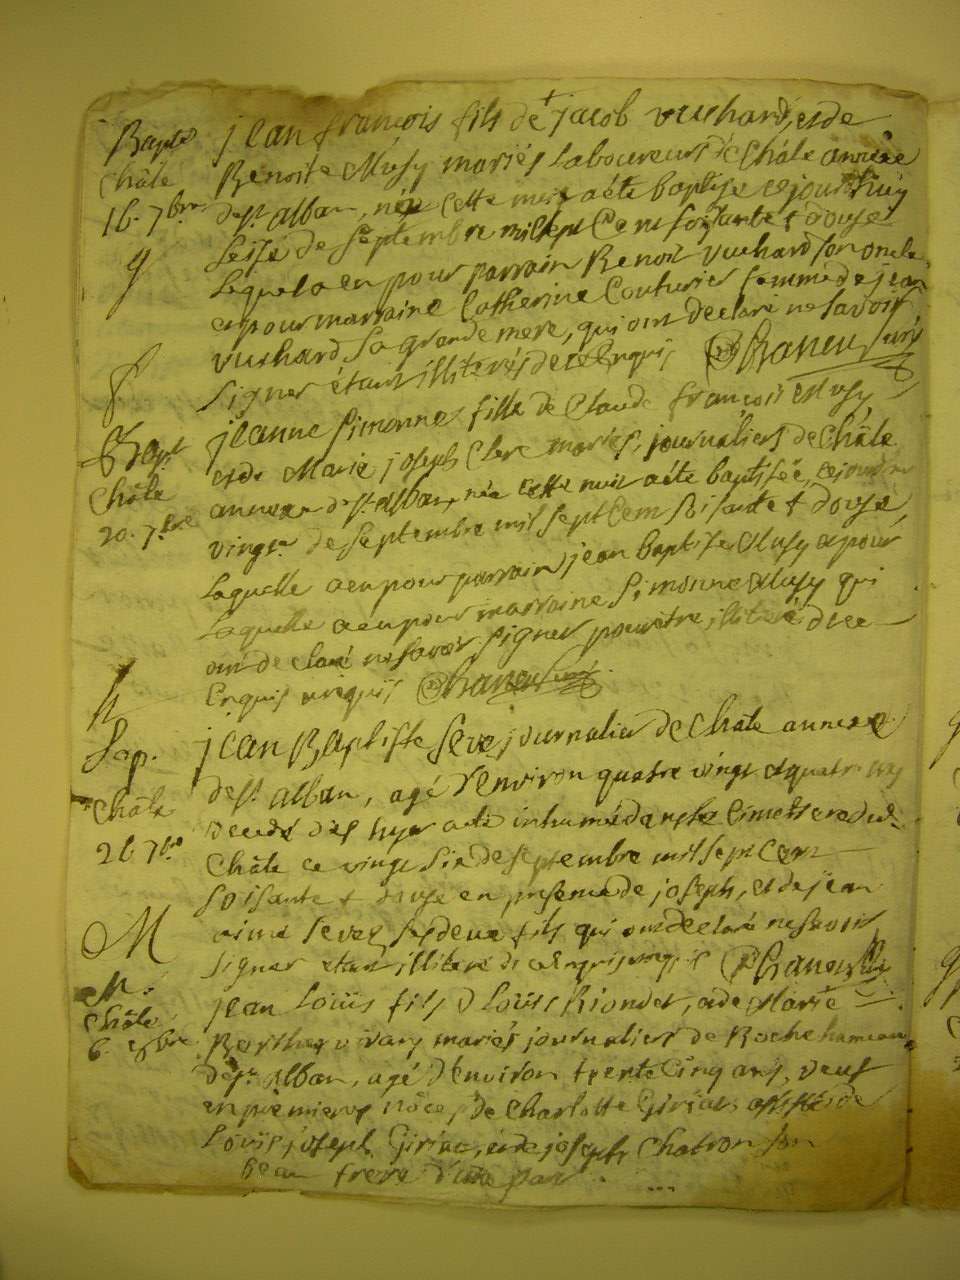 Bapt
Châle
16. 7bre
9
jean françois fils de jacob vuchard, et de
Benoite Musy mariés laboureurs de Châle annexe
de st alban, né cette nuit a été baptisé ce jourdhuy
seise de septembre mil sept Cent soixante & douse
lequel a eu pour parrain Benoit Vuchard son oncle
et pour marraine Catherine Couturier femme de jean
vuchard sa grande mere, qui ont declaré ne savoir
signer étant illiterés de ce Enquis curé
f
Bapt
Châle
20. 7bre
jeanne Simonne fille de Claude françois Musy
et de Marie joseph Clere mariés, journaliers de Châle
annexe de st alban, née cette nuit a été baptisée, ce jourdhui
vingt de septembre mil sept Cent soisante & douse,
laquelle a eu pour parrain jean baptiste Musy et pour
laquelle a eu pour marraine Simonne Musy qui
ont declaré ne savoir signer pour etre illiteré de ce
Enquis curé
h
Sep.
Châle
26 7bre
jean Baptiste Seve journalier de Châle annexe
de st alban, agé d'Environ quatre vingt et quatre ans
decedé dès hyer a été inhumé dans le Cimettere dud.
Châle ce vingt six de septembre mil sept Cent
soisante & douse en presence de joseph, et de jean
aimé Seve, ses deux fils qui ont declaré ne savoir
signer etant illiteré de ce Enquis
M
M.
Châle
6. 8bre
jean Loüis fils de Loüis Riondet, et de Marie
Berthet vivans mariés journaliers de Roche hameau
de st alban, agé d'Environ trente Cinq ans, veuf
en premieres nôces de Charlotte Giriat, assisté de
Loüis joseph Giriat, et de joseph Chatron son
beau frere d'une part